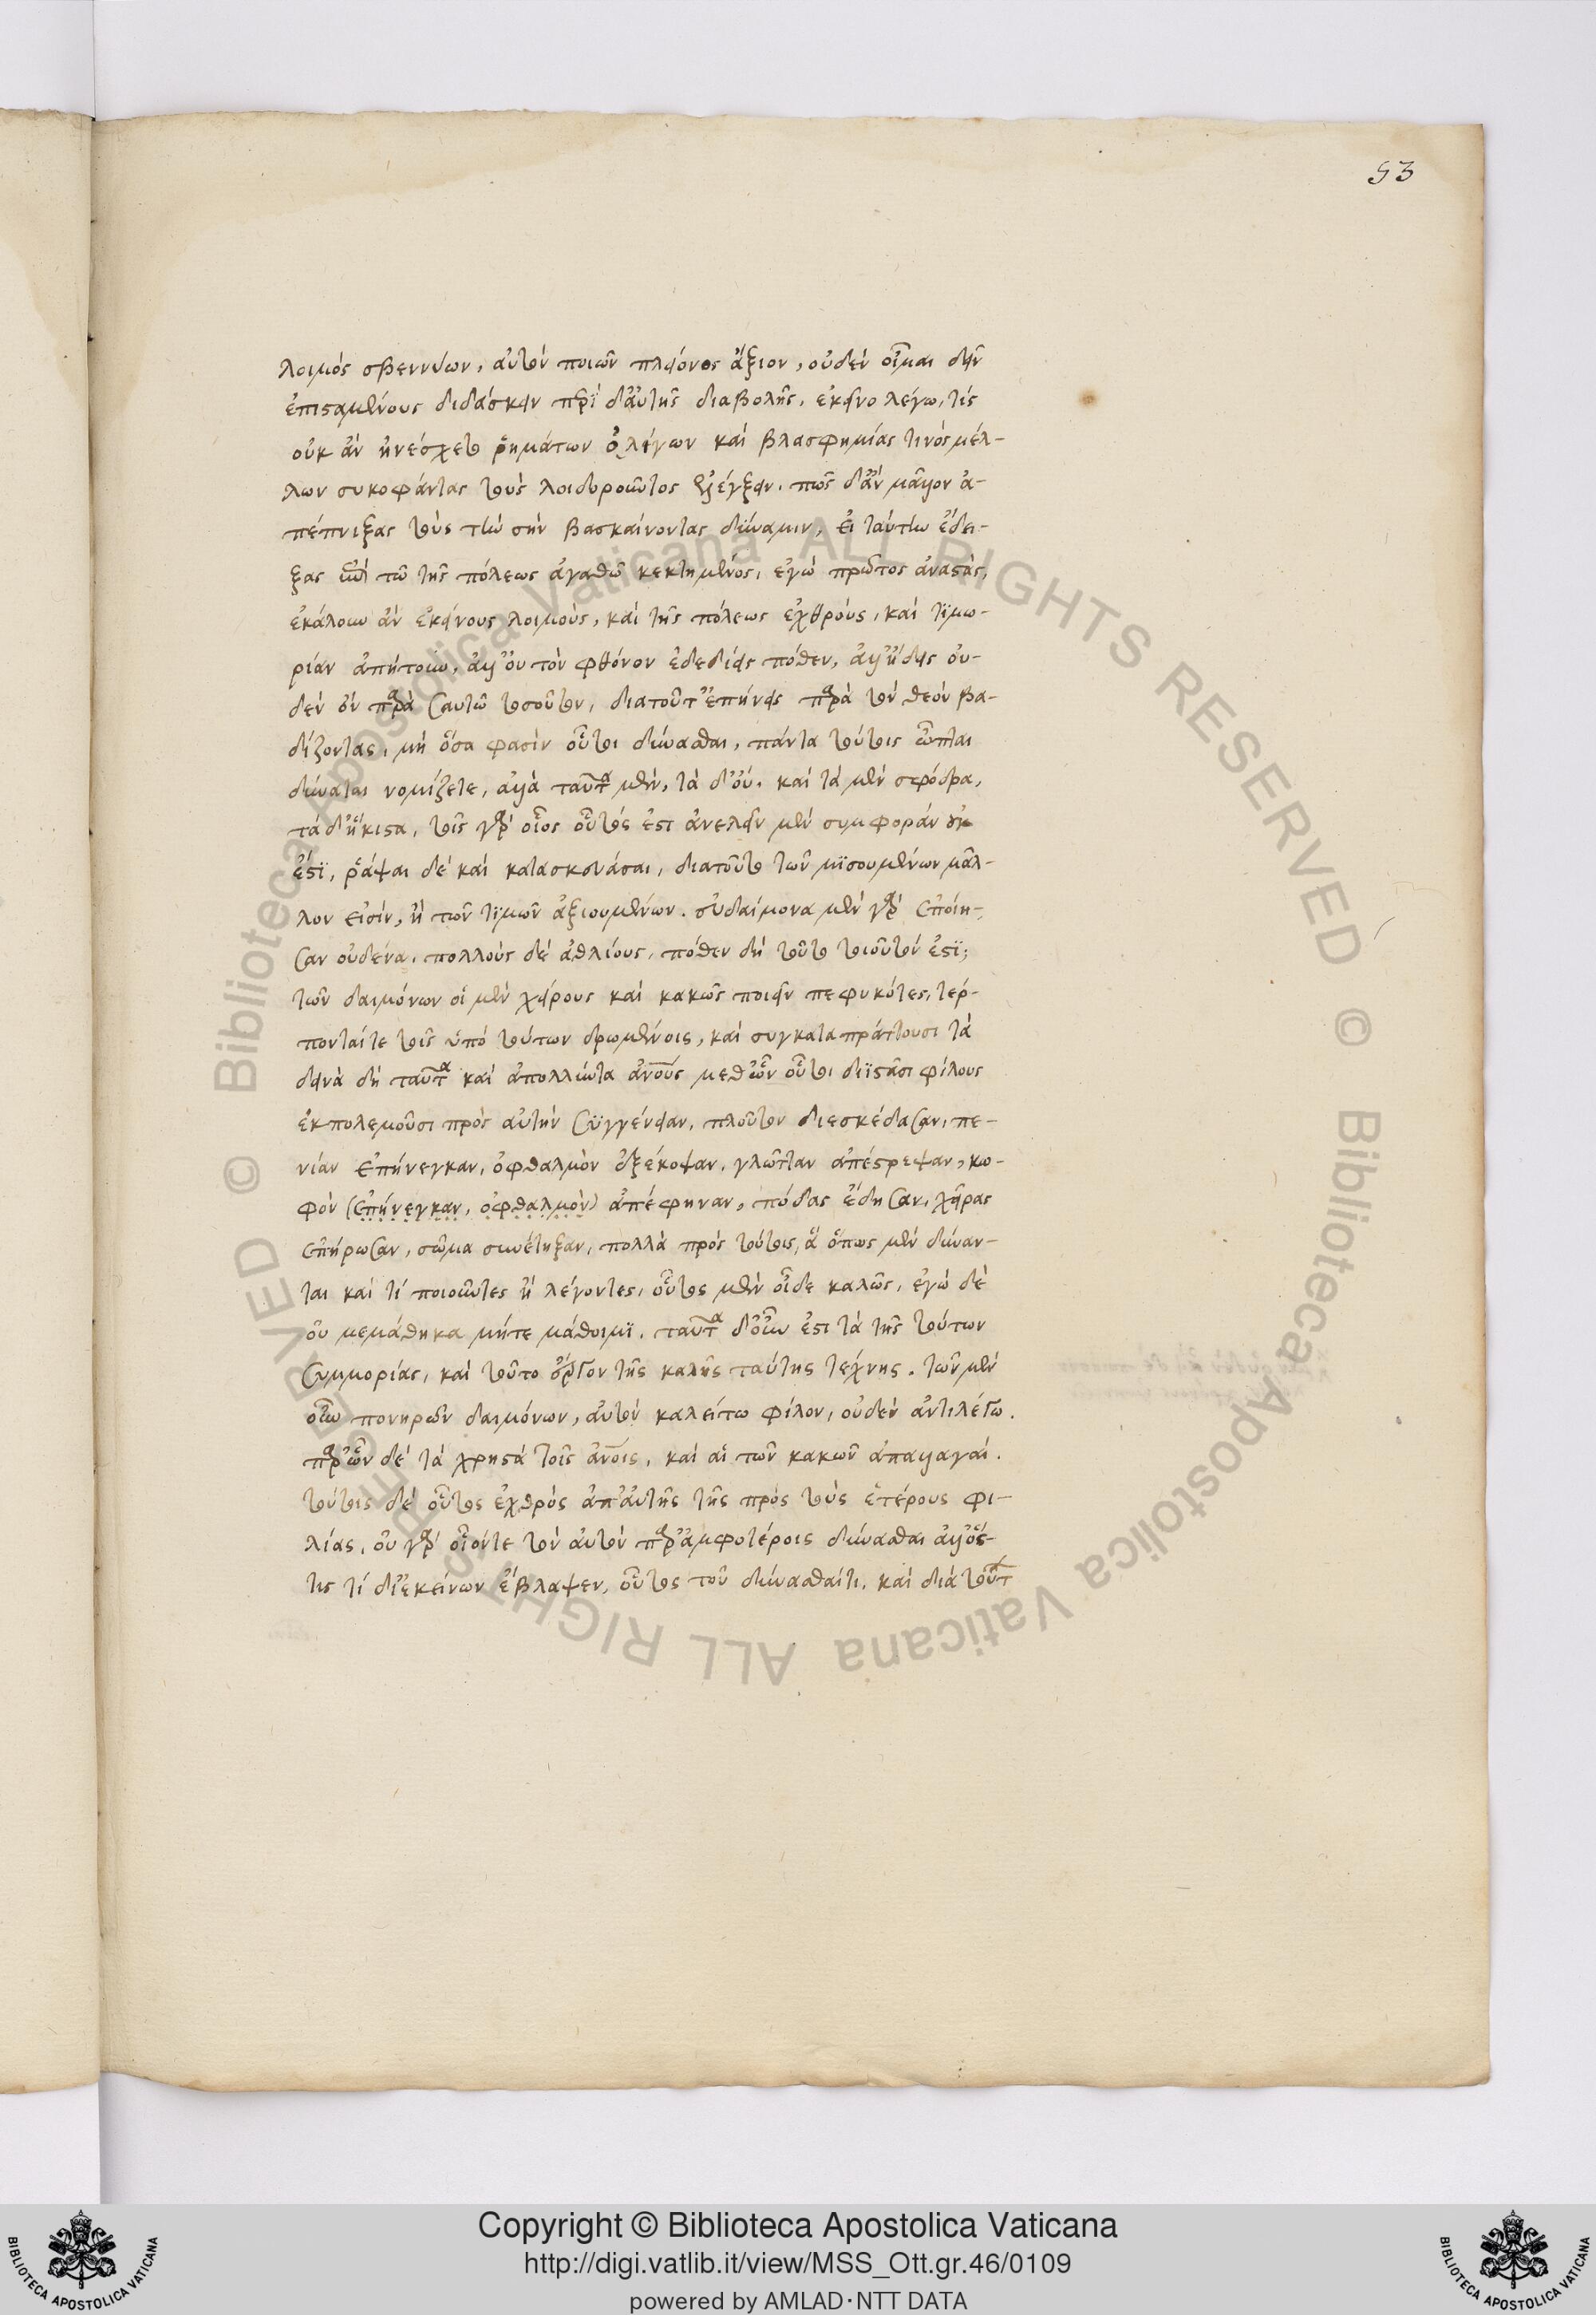 53
λοιμός σβεννύων, αὐτόν ποιῶν πλείονος ἄξιον, οὐδέν οἶμαι δεῖν
ἐπισαμένους διδάσκειν περὶ δ' αὐτῆς διαβολῆς, ἐκεῖνο λέγω, τίς
οὐκ ἄν ἠνέσχετο ῥημάτων ὀλίγων καί βλασφημίας τινός μέλ-
λων συκοφάντας τούς λοιδοροῦντας ἐξελέγξειν. πῶς δ' ἄν μᾶλλον ἀ-
πέπνιξας τούς τὴν σήν βασκαίνοντας δύναμιν, εἰ ταύτην ἔδει-
ξας ἐπὶ τῶ τῆς πόλεως ἀγαθῶ κεκτημένος, ἐγώ πρῶτος ἀναστάς,
ἐκάλουν ἄν ἐκείνους λοιμούς, καί τῆς πόλεως ἐχθρούς, καί τιμω-
ρίαν ἀπήτουν, ἀλλ' οὐ τόν φθόνον ἐδεδίεις πόθεν, ἀλλ' ᾔδεις οὐ-
δέν ὄν παρὰ σαυτῶ τοσοῦτον, διατοῦτ' ἐπήνεις παρὰ τόν θεόν βα-
δίζοντας, μή ὅσα φασίν οὗτοι δύνασθαι, πάντα τούτοις
δύναται νομίζετε, ἀλλὰ ταῦτα μέν, τὰ δ' οὔ. καί τά μέν σφόδρα,
τά δ' ἥκιστα, τοῖς γὰρ οἷος οὗτός ἐστι ἀνελεῖν μέν συμφοράν οὐκ
ἔστι, ῥάψαι δέ καί κατασκευάσαι, διατοῦτο τῶν μισουμένων μᾶλ-
λον εἰσίν, ἤ τῶν τιμῶν ἀξιουμένων. εὐδαίμονα μέν γὰρ ἐποίη-
σαν οὐδένα, πολλούς δέ ἀθλίους, πόθεν δή τοῦτο τοιοῦτόν ἐστι;
τῶν δαιμόνων οἱ μέν χείρους καί κακῶς ποιεῖν πεφυκότες, τέρ-
πονταί τε τοῖς ὑπό τούτων δρωμένοις, καί συγκαταπράττουσι τὰ
δεινὰ δή ταῦτα καί ἀπολλύντα ἀνους μεθ' ὧν οὗτοι διϊστᾶσι φίλους
ἐκπολεμοῦσι πρός αὐτήν συγγένειαν, πλοῦτον διεσκέδασαν, πε-
νίαν ἐπήνεγκαν, ὀφθαλμόν ἐξέκοψαν, γλῶτταν ἀπέστρεψαν, κω-
φόν (ἐπήνεγκαν, ὀφθαλμόν) ἀπέφηναν, πόδας ἔδησαν, χεῖρας
ἐπήρωσαν, σῶμα συνέτηξαν, πολλά πρός τούτοις, ἅ ὅπως μέν δύναν-
ται καί τί ποιοῦντες ἤ λέγοντες, οὗτος μέν οἶδε καλῶς, ἐγώ δέ
οὐ μεμάθηκα μήτε μάθοιμι. ταῦτα δ' οὖν ἐστι τὰ τῆς τούτων
συμμορίας, καί τοῦτο ἔργον τῆς καλῆς ταύτης τέχνης. τῶν μέν
οὖν πονηρῶν δαιμόνων, αὐτόν καλείτω φίλον, οὐδέν ἀντιλέγω.
παρ' ὧν δέ τά χρηστά τοῖς ἀνοις, καί αἱ τῶν κακῶν ἀπαλλαγαί.
τούτοις δέ οὗτος ἐχθρός ἀπ' αὐτῆς τῆς πρός τούς ἑτέρους φι-
λίας, οὐ γὰρ οἷόντε τόν αὐτόν παρ' ἀμφοτέροις δύνασθαι ἀλλ' ὅσ-
τις τί δι' ἐκείνων ἔβλαψεν, οὗτος τοῦ δύνασθαί τι, καί διὰ τοῦτ
Copyright © Biblioteca Apostolica Vaticana
http://digi.vatlib.it/view/MSS_Ott.gr.46/0109
powered by AMLAD·NTT DATA